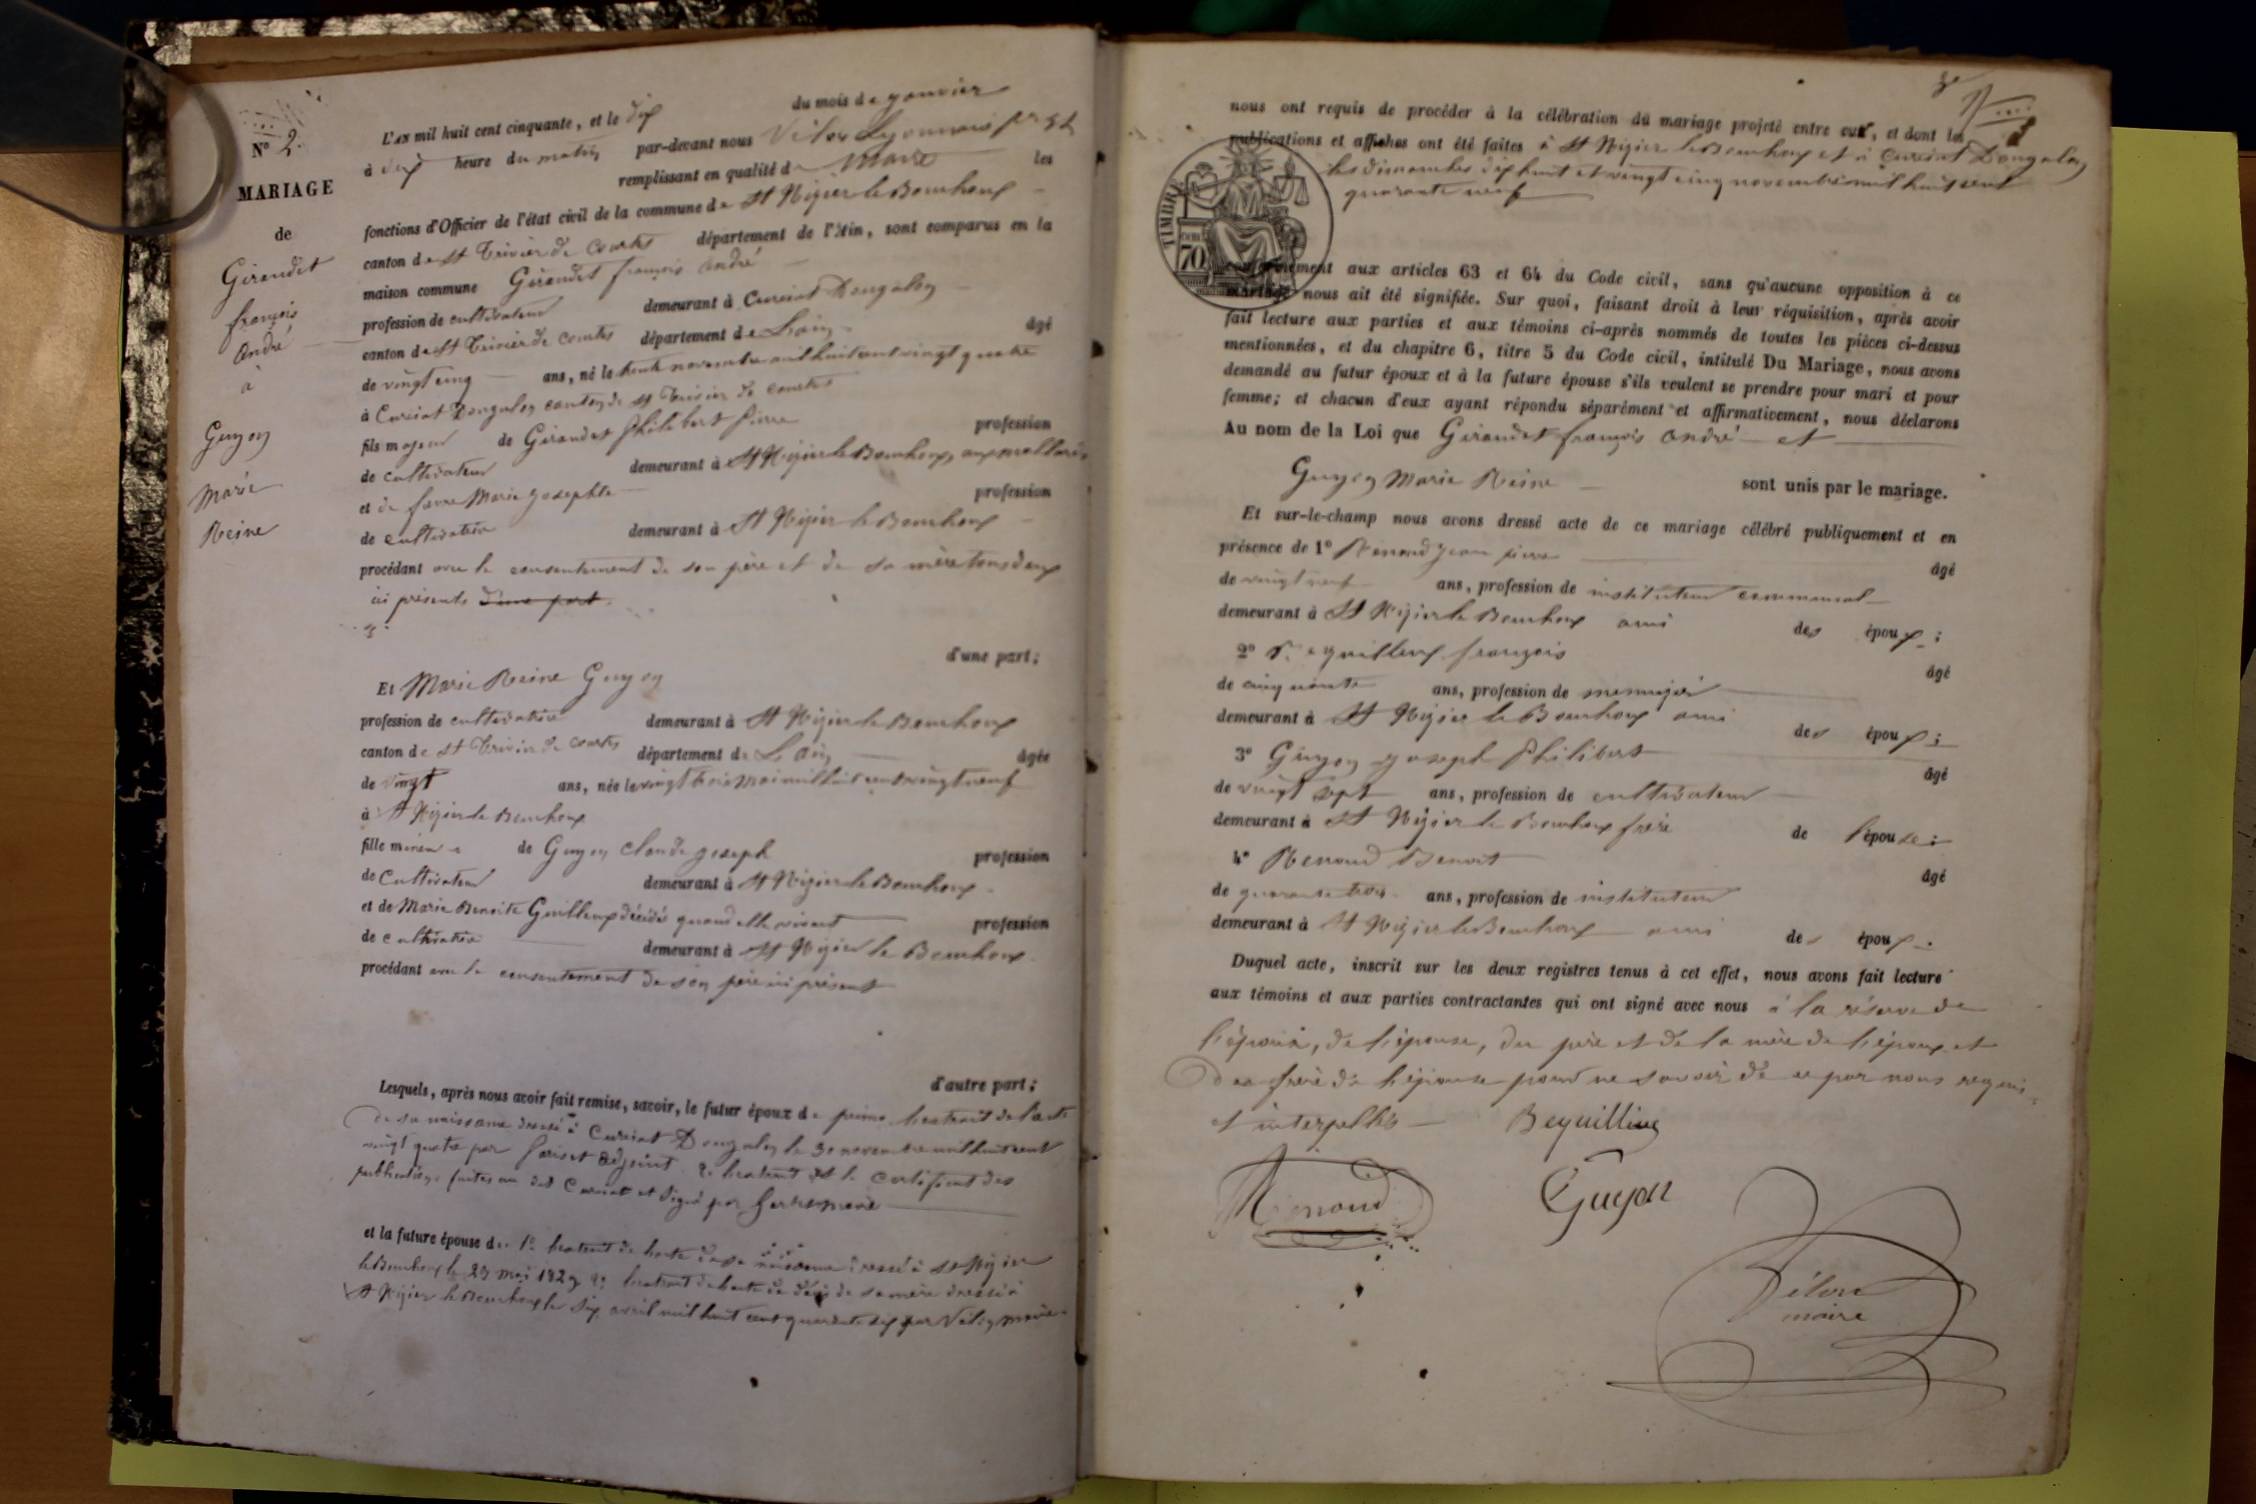 N° 2.
MARIAGE
de
Giraudet
françois
André
à
Guyon
Marie
Reine
L'AN mil huit cent cinquante, et le dix du mois de janvier
à dix heure du matin par-devant nous Vélon Lyonnais
remplissant en qualité de Maire les
fonctions d'Officier de l'état civil de la commune de St Nizier le Bouchoux
canton de St Trivier de Courtes département de l'Ain, sont comparus en la
maison commune Giraudet françois André
profession de cultivateur demeurant à Curciat Dongalon
canton de St Trivier de Courtes département de L'ain âgé
de vingt cinq ans, né le trente novembre mil huit cent vingt quatre
à Curciat Dongalon canton de St Trivier de courtes
fils majeur de Giraudet Philibert Pierre profession
de cultivateur demeurant à St Nizier le Bouchoux, aux
et de favre Marie Josephte profession
de cultivatrice demeurant à St Nizier le Bouchoux
procédant avec le consentement de son père et de sa mère tous deux
ici présents d'une part.
d'une part;
Et Marie Reine Guyon
profession de cultivatrice demeurant à St Nizier le Bouchoux
canton de St Trivier de Courtes département de L'ain âgée
de vingt ans, née le vingt trois mai mil huit cent vingt neuf
à St Nizier le Bouchoux
fille mineure de Guyon Claude Joseph profession
de Cultivateur demeurant à St Nizier le Bouchoux
et de Marie Benoite Guilloux décédée quand elle vivait profession
de cultivatrice demeurant à St Nizier le Bouchoux
procédant avec le consentement de son père ici présent
d'autre part;
Lesquels, après nous avoir fait remise, savoir, le futur époux de primo l'extrait de l'acte
de sa naissance dressé à Curciat Dongalon le 30 novembre mil huit cent
vingt quatre par adjoint 2° l'extrait et le certificat des
publications faites au dit Curciat et signé par maire
et la future épouse de 1° l'extrait de l'acte de sa naissance dressé à St Nizier
le Bouchoux le 23 mai 1829 2° l'extrait de l'acte de décès de sa mère dressé à
St Nizier le Bouchoux le six avril mil huit cent quarante six par Vélon maire
nous ont requis de procéder à la célébration du mariage projeté entre eux, et dont les
publications et affiches ont été faites à St Nizier le Bouchoux et à Curciat Dongalon
les dimanches dix huit et vingt cinq novembre mil huit cent
quarante neuf
TIMBRE
70
conformément aux articles 63 et 64 du Code civil, sans qu'aucune opposition à ce
mariage nous ait été signifiée. Sur quoi, faisant droit à leur réquisition, après avoir
fait lecture aux parties et aux témoins ci-après nommés de toutes les pièces ci-dessus
mentionnées, et du chapitre 6, titre 5 du Code civil, intitulé Du Mariage, nous avons
demandé au futur époux et à la future épouse s'ils veulent se prendre pour mari et pour
femme; et chacun d'eux ayant répondu séparément et affirmativement, nous déclarons
Au nom de la Loi que Giraudet françois André et
Guyon Marie Reine sont unis par le mariage.
Et sur-le-champ nous avons dressé acte de ce mariage célébré publiquement et en
présence de 1° Renoud Jean pierre âgé
de vingt neuf ans, profession de instituteur communal
demeurant à St Nizier le Bouchoux ami des époux;
2° Bequilleux françois âgé
de cinquante ans, profession de menuisier
demeurant à St Nizier le Bouchoux ami des époux;
3° Guyon Joseph Philibert âgé
de vingt sept ans, profession de cultivateur
demeurant à St Nizier le Bouchoux frère de l'épouse;
4° Renoud Benoit âgé
de quarante trois ans, profession de instituteur
demeurant à St Nizier le Bouchoux ami des époux.
Duquel acte, inscrit sur les deux registres tenus à cet effet, nous avons fait lecture
aux témoins et aux parties contractantes qui ont signé avec nous à la réserve de
l'époux, de l'épouse, du père et de la mère de l'époux et
du frère de l'épouse pour ne savoir de ce par nous requis
et interpellés
Bequilleux
Renoud
Guyon
Vélon
maire